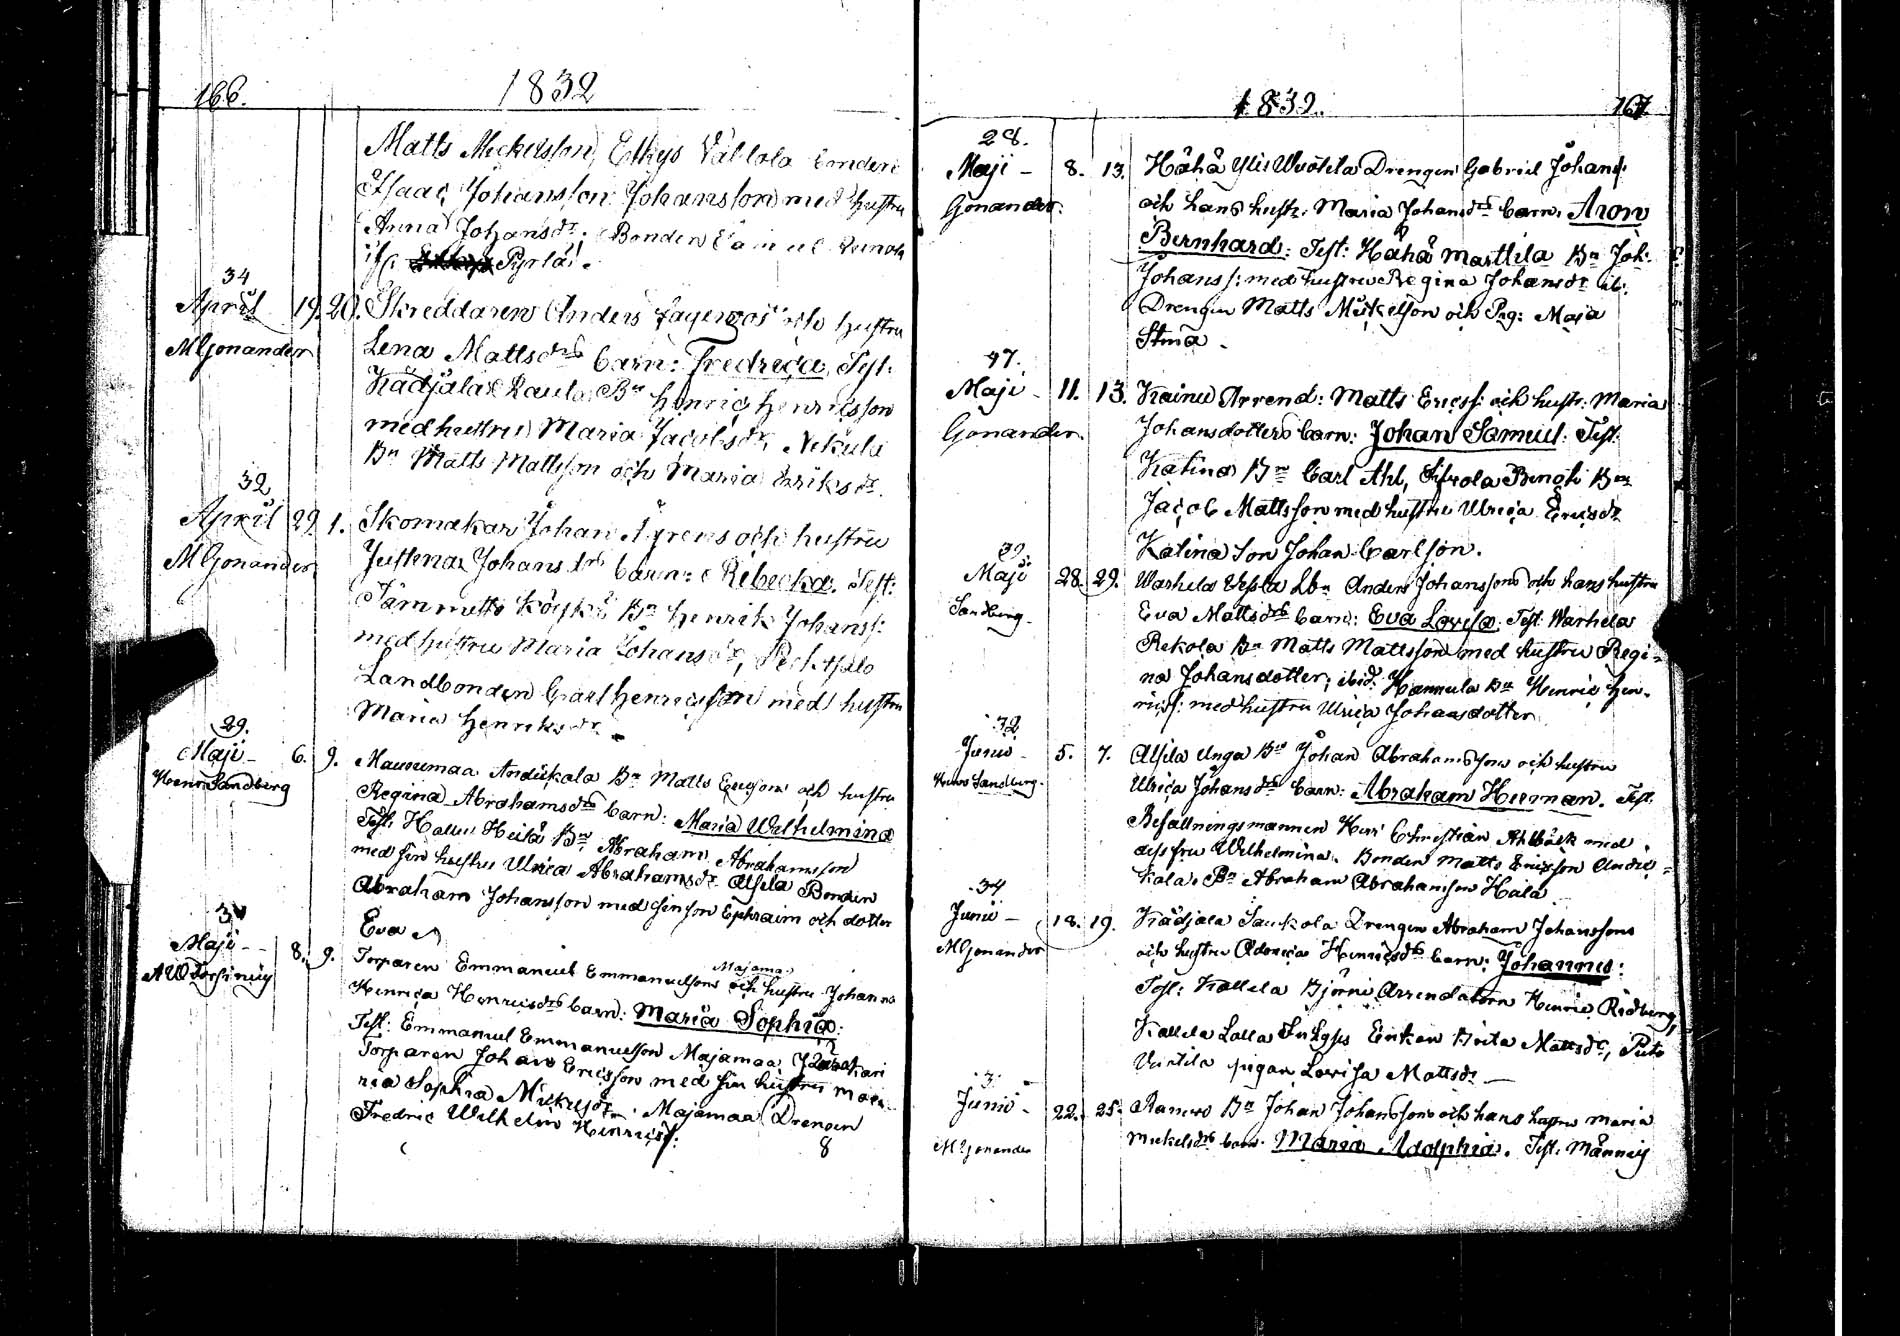 166.
1832
Matts Mickelsson, Elkys Vällola bonden
Isaac Johansson Johansson med hustru
Anna Johansdr; Bonden
if. Pyrlä.
34
April 19. 20. Skreddaren Anders Fagerros och hustru
MGonander Lena Mattsdrs barn: Fredrica, Test:
Kädjälä Kaula Bn Henric Henricsson
med hustru Maria Jacobsdr, Nikula
Bn Matts Mattsson och Maria Eriksdr.
32
April 29. 1. Skomakar Johan Nyrens och hustru
MGonander Justena Johansdrs barn: Rebecka. Test:
Tammetts Köykä Bn Henrik Johanss:
med hustru Maria Johansdr,
Landbonden Carl Henricsson med hustru
Maria Henriksdr.
29.
Maji - 6. 9. Mausumaa Andükala Bn Matts Ericsons och hustru
Henr. Sandberg Regina Abrahamsdrs barn: Maria Wilhelmina
Test: Hallu Heilä Bn Abraham Abrahamsson
med sin hustru Ulrica Abrahamsdr Alsila Bonden
Abraham Johansson med sin son Ephraim och dotter
Eva
Maji - 8. 9. Torparen Emmanuel Emmanuelsons och hustru Johanna
Majama
Henrica Henricsdrs barn: Maria Sophia:
Test: Emmanuel Emmanuelsson Majamaa,
Torparen Johan Ericsson med sin hustru Ma-
ria Sophia Mickelsdr. Majamaa Drengen
Fredric Wilhelm Henricss:
8
1832.
167.
28.
Maji - 8. 13. Håhå Yli Wuohila Drengen Gabriel Johanss
Gonander. och hans hustr. Maria Johansdrs barn. Aron
Bernhard: Test: Håhå Marttila Bn Joh:
Johanss: med hustru Regina Johansdr ib:
Drengen Matts Mickelsson och Pig: Maja
Stina.
47.
Maji - 11. 13. Kainu Arrend: Matts Ericss: och hustr: Maria
Gonander. Johansdotters barn: Johan Samuel: Test:
Katina Bn Carl Ahl, Sipola Bengti Bn
Jacob Mattsson med hustru Ulrica Ericsdr
Katina Son Johan Carlsson.
32.
Maji 28. 29. Warhela Uppla Lbn Anders Johanssons och hans hustru
Sandberg. Eva Mattsdrs barn: Eva Lovisa: Test: Warhela
Rekola Bn Matts Mattsson med hustru Regi-
na Johansdotter; ibid. Hannula Bn Henric Hen-
ricss: med hustru Ulrica Johansdotter
32
Junii - 5. 7. Alsila Unga Bn Johan Abrahamssons och hustru
Henr Sandberg. Ulrica Johansdrs barn: Abraham Herman. Test:
Befallningsmannen Herr Christian Ahlbäck med
dess fru Wilhelmina. Bonden Matts Ericsson Andü-
kala. Bn Abraham Abrahamson Hala
34
Junii - 18. 19. Kädjälä Saukola Drengen Abraham Johanssons
MGonander och hustru Adorica Henricsdrs barn: Johannes:
Test: Kallela Björni Arrendatorn Henric Rydberg,
Kallela Lalla Enkan Brita Mattsdr,
pigan Lovisa Mattsdr
3.
Junii - 22. 25. Ramoo Bn Johan Johanssons och hans hustru Maria
MGonander Mickelsdrs barn. Maria Adolphia. Test: Männig